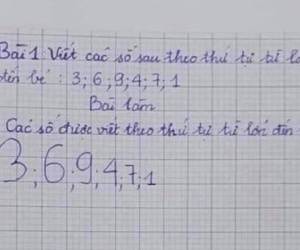 Bài 1 Viết các số sau theo thứ tự từ l
đến bé : 3; 6; 9; 4; 7; 1
Bài làm
Các số được viết theo thứ tự từ lớn đến
3; 6; 9; 4; 7; 1